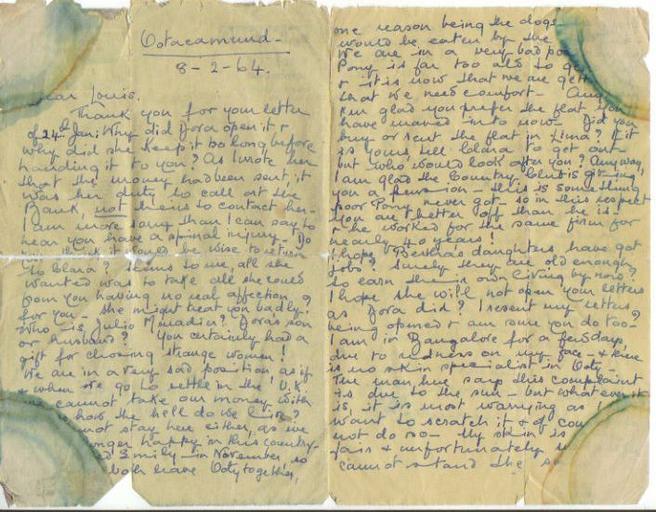 Ootacamund -
8 - 2 - 64.
Dear Louis.
Thank you for your letter
of 24th Jan; Why did Dora open it &
why did she keep it so long before
handing it to you? As I wrote her
that the money had been sent, it
was her duty to call at the
Bank, not theirs to contact her -
I am more sorry than I can say to
hear you have a spinal injury - Do
you think it would be wise to return
to Clara? Seems to me, all she
wanted was to take all she could
from you having no real affection
for you - she might treat you badly!
Who is Julio Miradia? Dora's son
or husband? You certainly had a
gift for choosing strange women!
We are in a very sad position, as if
& when we go to settle in the U.K.
we cannot take our money with
how the hell do we live?
not stay here either, as we
longer happy in this country.
Emily - in November, so
both leave Ooty together,
one reason being the dogs
would be eaten by the
We are in a very bad
Pony is far too old to
& it is now that we are
that we need comfort - Any
am glad you prefer the flat you
have moved in to now. Did you
buy or rent the flat in Lima? If it
is yours tell Clara to get out -
but who would look after you? Anyway,
I am glad the Country Club is giving
you a pension - this is something
poor Pony never got - so in this respect
you are better off than he is -
& he worked for the same firm for
nearly 40 years!
I hope Bertha's daughters have got
jobs? Surely they are old enough
to earn their own living by now?
I hope she will not open your letters
as Dora did? I resent my letters
being opened & am sure you do too -
I am in Bangalore for a few days,
due to redness on my face - & there
is no skin specialist in Ooty -
The man here says this complaint
is due to the sun - but whatever it
is, it is most worrying as I
want to scratch it & of
not do so - My skin is
fair & unfortunately
cannot stand the